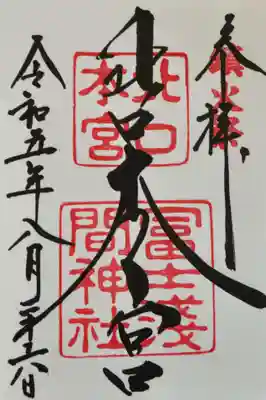 奉拝
北口本宮
北口
本宮
冨士淺
間神社
令和五年八月二十六日